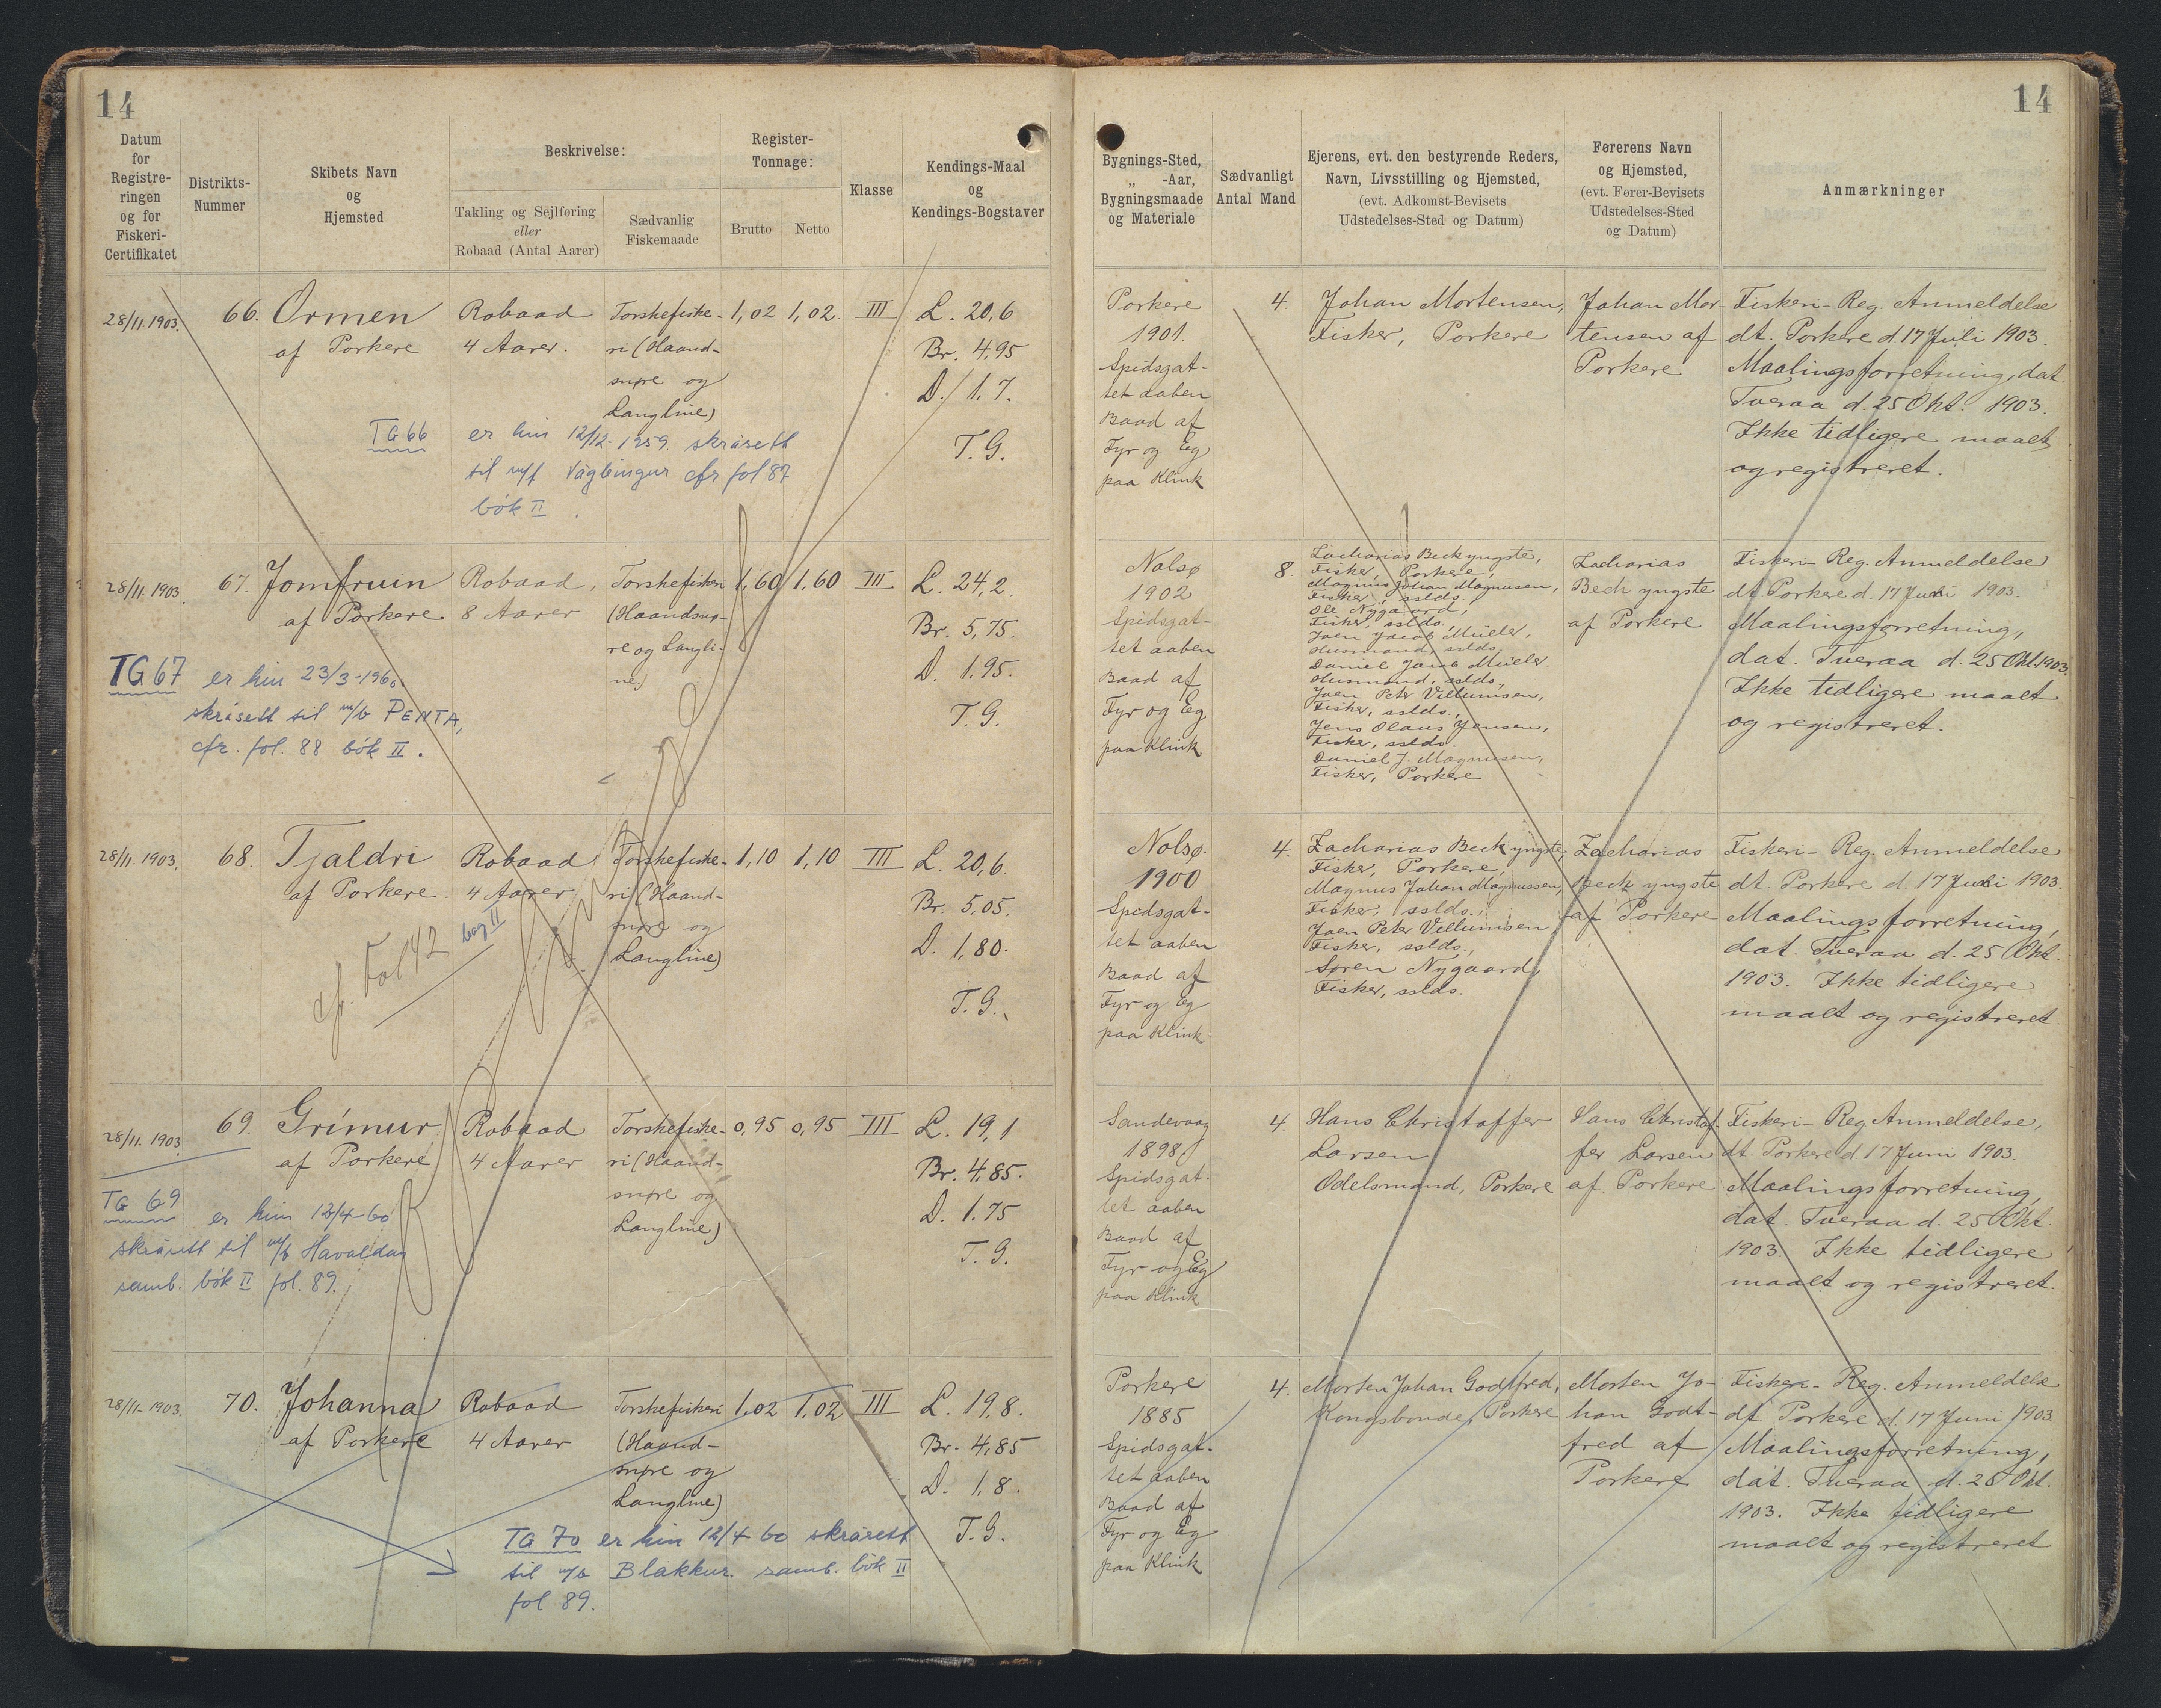 14
Datum
for
Registre-
ringen
og for
Fiskeri-
Certifikatet
Distrikts-
Nummer
Skibets Navn
og
Hjemsted
Beskrivelse:
Takling og Sejlføring
eller
Robaad (Antal Aarer)
Sædvanlig
Fiskemaade
Register-
Tonnage:
Brutto
Netto
Klasse
Kendings-Maal
og
Kendings-Bogstaver
28/11. 1903.
66.
Ormen
af Porkere
Robaad
4 Aarer.
Torskefiske-
ri (Haand-
snøre og
Langline)
1,02
1,02
III
L. 20,6
Br. 4,95
D. 1,7.
T. G.
TG 66
er hin 12/12-1959. skrásett
til m/f Váglingur cfr fol 87
bók II.
28/11. 1903.
67.
Jomfruin
af Porkere
Robaad,
8 Aarer
Torskefiskeri
(Haandsnø-
re og Langli-
ne)
1,60
1,60
III
L. 24,2.
Br. 5,75.
D. 1,95.
T. G.
TG 67
er hin 23/3-1960.
skrásett til m/b PENTA,
cfr. fol. 88 bók II.
28/11. 1903.
68.
Tjaldri
af Porkere.
Robaad
4 Aarer
Torskefiske-
ri (Haand-
snøre og
Langline)
1,10
1,10
III
L. 20,6.
Br. 5,05.
D. 1,80.
T. G.
cf. Fol 42
bog II
28/11. 1903
69.
Grímur
af Porkere
Robaad
4 Aarer
Torskefiske-
ri (Haand-
snøre og
Langline)
0,95
0,95
III
L. 19,1
Br. 4,85.
D. 1.75
T. G.
TG 69
er hin 12/4-60
skrásett til m/b Havaldan
samb. bók II fol. 89.
28/11- 1903.
70.
Johanna
af Porkere
Robaad
4 Aarer
Torskefiskeri
(Haand-
snøre og
Langline)
1,02
1,02
III
L. 19,8.
Br. 4,85
D. 1,8.
T. G.
TG 70 er hin 12/4 60 skrásett
til m/b Blakkur. samb. bók II
fol 89.
14
Bygnings-Sted,
„ -Aar,
Bygningsmaade
og Materiale
Sædvanligt
Antal Mand
Ejerens, evt. den bestyrende Reders,
Navn, Livsstilling og Hjemsted,
(evt. Adkomst-Bevisets
Udstedelses-Sted og Datum)
Førerens Navn
og Hjemsted,
(evt. Fører-Bevisets
Udstedelses-Sted
og Datum)
Anmærkninger
Porkere
1901.
Spidsgat-
tet aaben
Baad af
Fyr og Eg
paa Klink
4.
Johan Mortensen,
Fisker, Porkere
Johan Mor-
tensen af
Porkere
Fiskeri-Reg. Anmeldelse
dt. Porkere d 17 Juli 1903.
Maalingsforretning, dat.
Tveraa d. 25 Okt. 1903.
Ikke tidligere maalt
og registreret.
Nolsø
1902
Spidsgat-
tet aaben
Baad af
Fyr og Eg
paa Klink
8.
Zacharias Beck yngste,
Fisker, Porkere,
Magnus Johan Magnusen,
Fisker, sslds.,
Ole Nygaard,
Fisker, sslds.,
Joen Jacob Müeler,
Husmand, sslds.
Daniel Jacob Müeler
Husmand, sslds.,
Joen Peter Villumsen,
Fisker, sslds.,
Jens Olaus Jensen,
Fisker, sslds.
Daniel J. Magnusen,
Fisker, Porkere
Zacharias
Bech yngste
af Porkere
Fiskeri-Reg. Anmeldelse
dt Porkere d. 17 Juni 1903.
Maalingsforretning,
dat. Tveraa d. 25 Okt. 1903.
Ikke tidligere maalt
og registreret.
Nolsø.
1900
Spidsgat-
tet aaben
Baad af
Fyr og Eg
paa Klink
4.
Zacharias Beck yngste,
Fisker, Porkere,
Magnus Johan Magnussen,
Fisker, sslds.,
Joen Peter Villumsen,
Fisker, sslds.,
Søren Nygaard,
Fisker, sslds.
Zacharias
Beck yngste
af Porkere
Fiskeri-Reg. Anmeldelse
dt. Porkere d. 17 Juni 1903.
Maalingsforretning,
dat. Tveraa d. 25 Okt.
1903. Ikke tidligere
maalt og registreret.
Sandevaag
1898
Spidsgat-
tet aaben
Baad af
Fyr og Eg
paa Klink
4.
Hans Christoffer
Larsen
Odelsmand, Porkere
Hans Christof-
fer Larsen
af Porkere
Fiskeri-Reg Anmeldelse,
dt. Porkere d 17 Juni 1903.
Maalingsforretning,
dat. Tveraa d. 25 Okt.
1903. Ikke tidligere
maalt og registreret.
Porkere
1885
Spidsgat-
tet aaben
Baad af
Fyr og Eg
paa Klink
4.
Morten Johan Godtfred,
Kongsbonde, Porkere
Morten Jo-
han Godt-
fred af
Porkere
Fiskeri-Reg. Anmeldelse
dt. Porkere d. 17 Juni 1903.
Maalingsforretning,
dat. Tveraa d. 25 Okt.
1903. Ikke tidligere
maalt og registreret